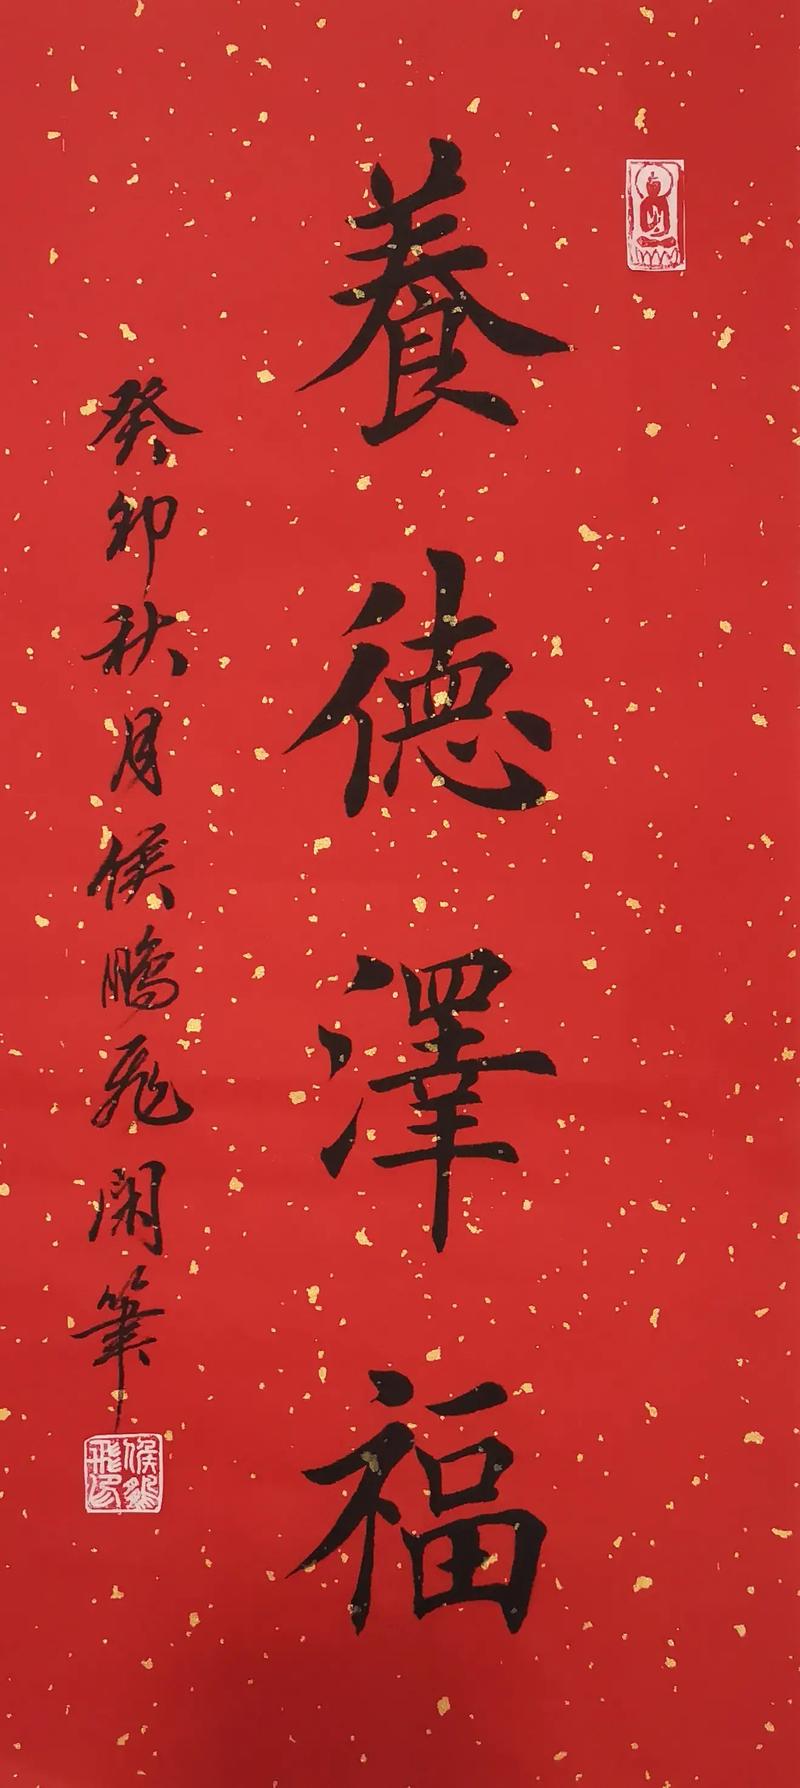 養德澤福
癸卯秋月侯鵬飛閑筆
侯鵬飛印